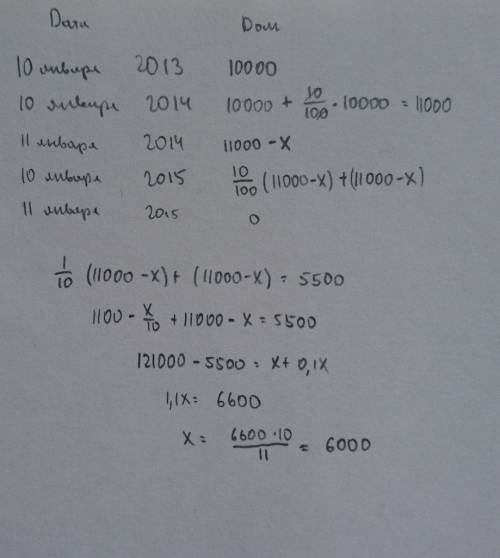 Дата Долг
10 января 2013 10000
10 января 2014 10000 + 10/100 · 10000 = 11000
11 января 2014 11000 - x
10 января 2015 10/100 (11000-x) + (11000-x)
11 января 2015 0
1/10 (11000-x) + (11000-x) = 5500
1100 - x/10 + 11000 - x = 5500
121000 - 5500 = x + 0,1x
1,1x = 6600
x = 6600·10/11 = 6000